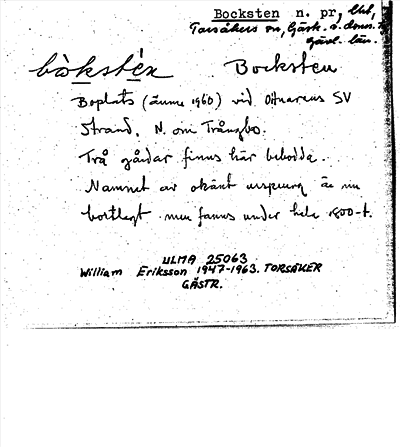 Bocksten n. pr, 
Torsåkers sn, Gästr. 
Gävl. län.
bòkstén Bocksten
Boplats (ännu 1960) vid Ottnarens SV
Strand, N. om Trångbo.
Två gårdar finns här bebodda.
Namnet av okänt ursprung är nu
bortlagt men fanns under hela 1800-t.
ULMA 25063
William Eriksson 1947-1963. TORSÅKER
GÄSTR.